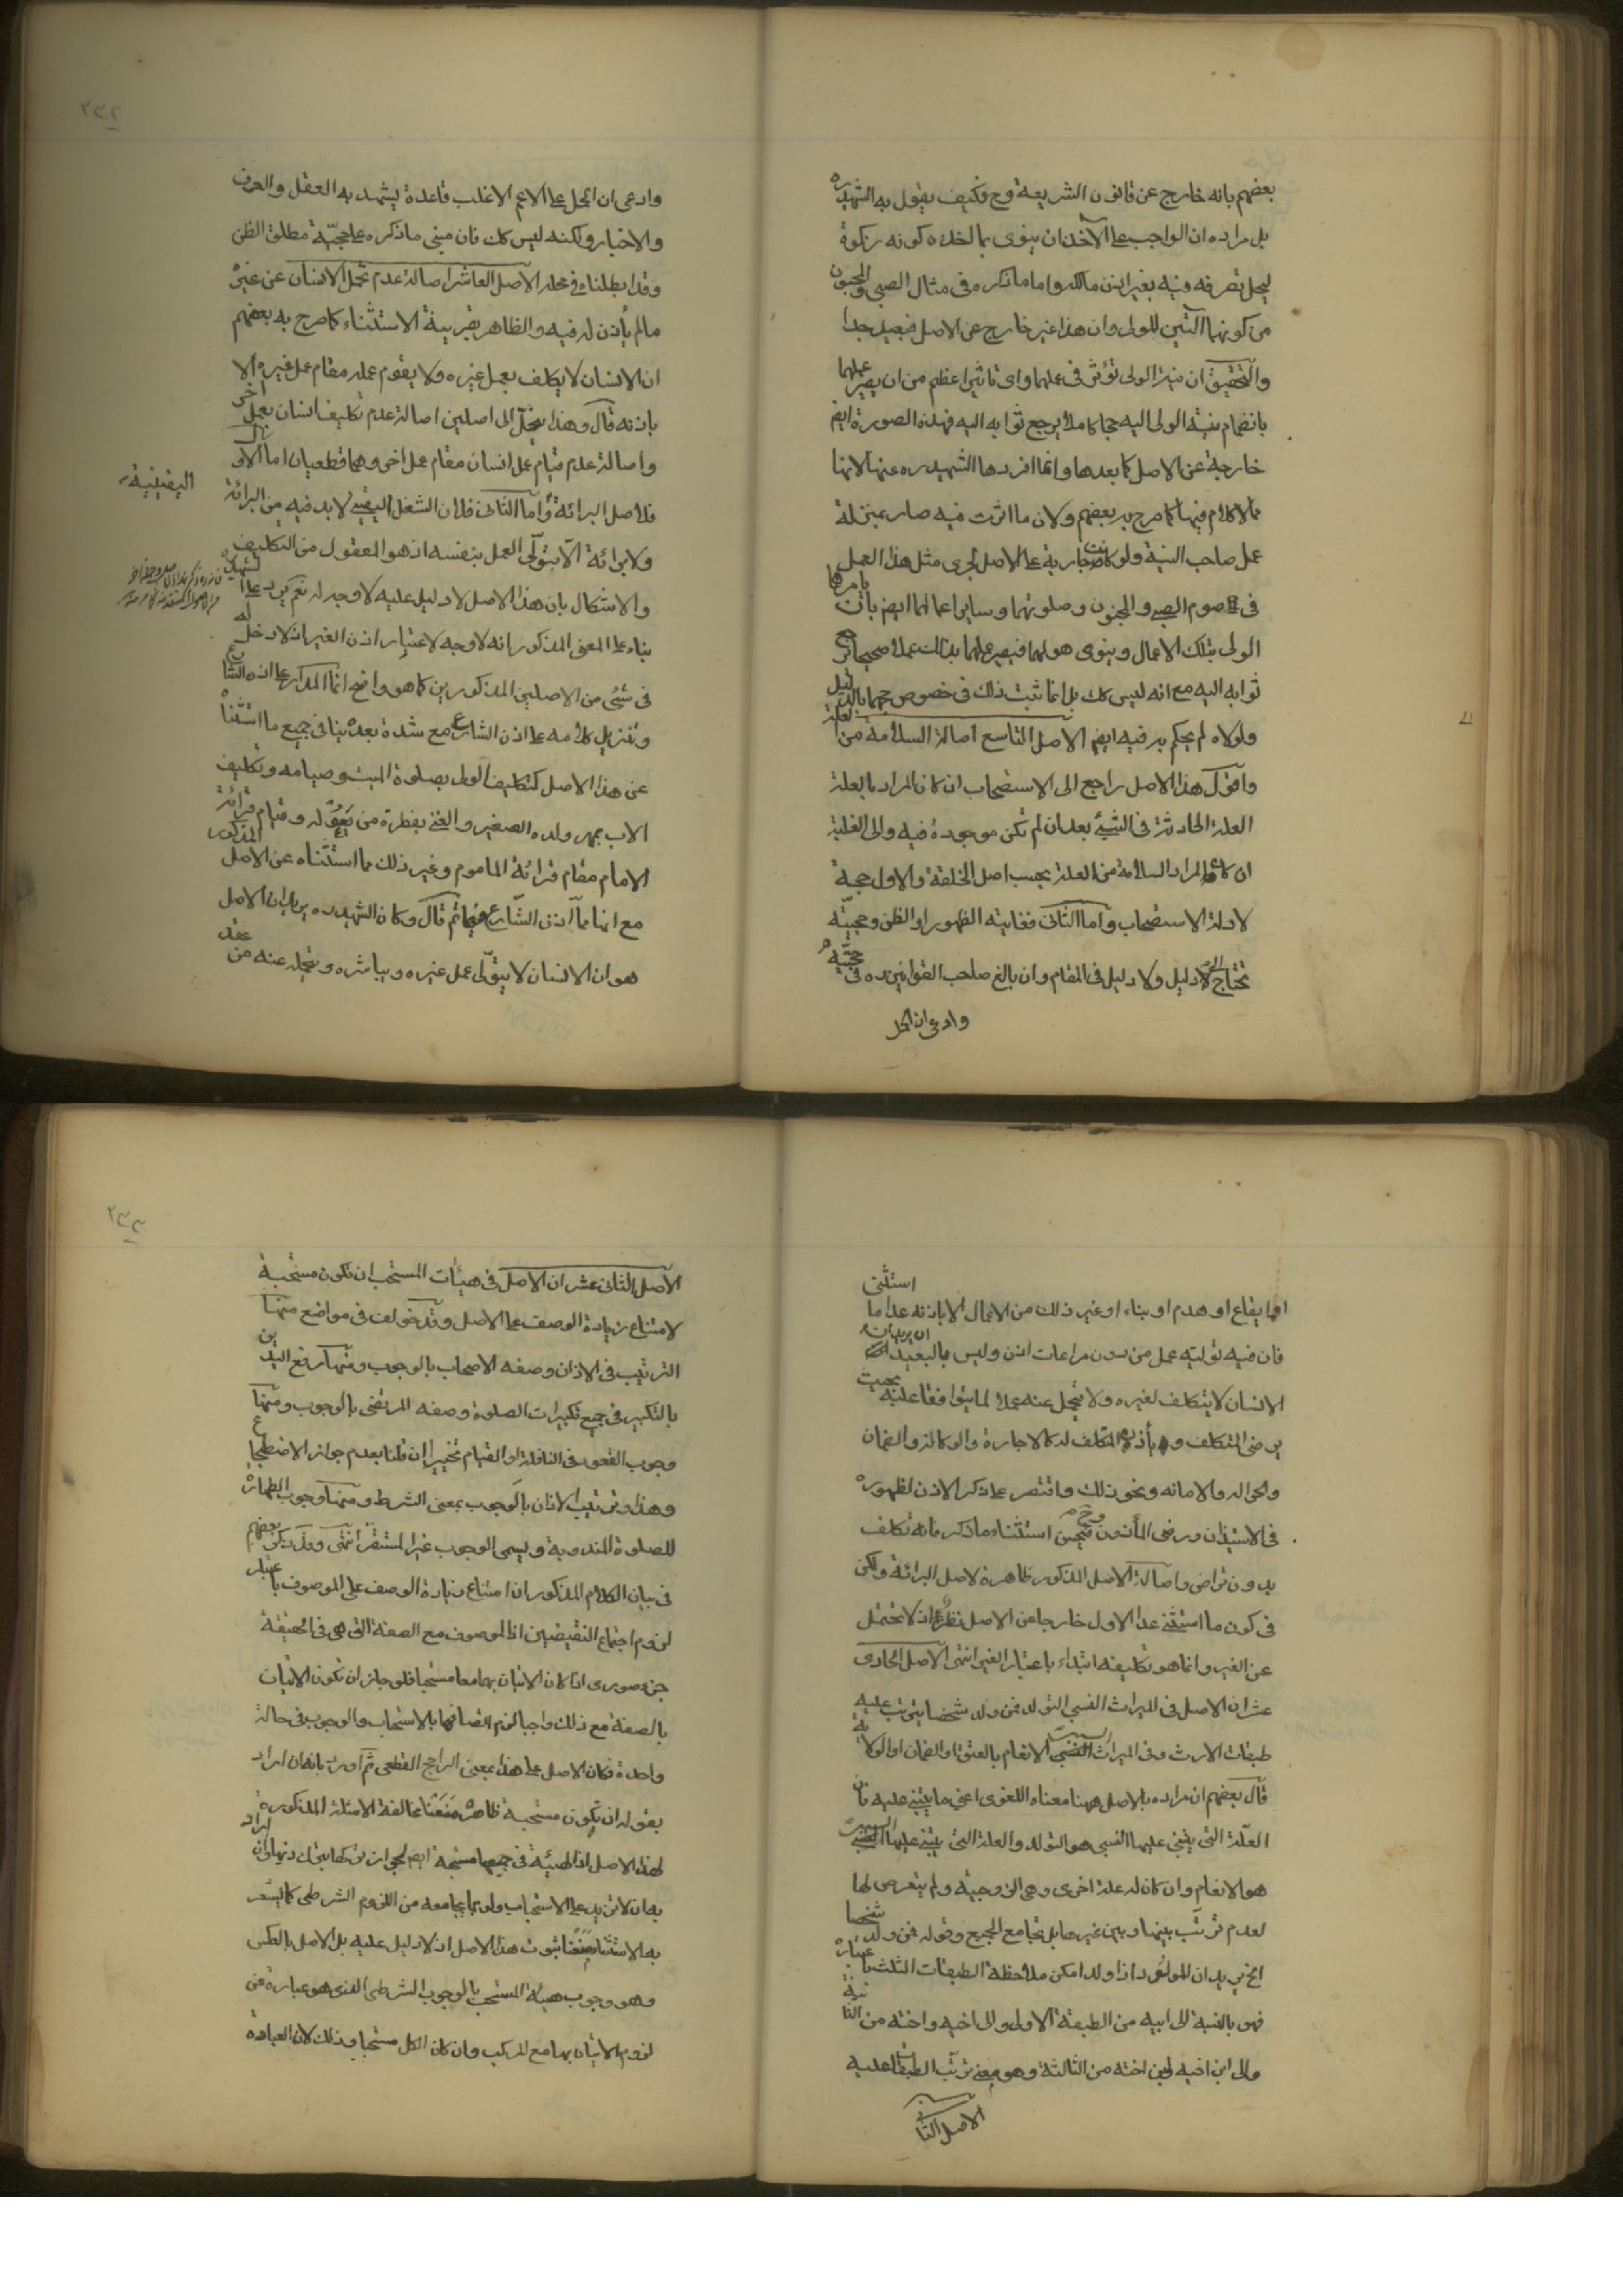 بعضهم بانه خارج عن قانون الشريعة وح فكيف يقول به الشهيد ره
بل مراده ان الواجب على الآخذ ان ينوى بما اخذه كونه زكوة
ليحل تصرفه فيه بغير اذن مالكه واما ما ذكره فى مثال الصبى والمجنون
من كونهما آلتين للولى وان هذا غير خارج عن الاصل فبعيد جدا
والتحقيق ان نية الولى تؤثر فى عملهما واى تاثير اعظم من ان يصير عملهما
بانضمام نية الولى اليه حجا كاملا يرجع ثوابه اليه فهذه الصورة ايض
خارجة عن الاصل كما بعدها وانما افردها الشهيد ره عنها لانها
مما لا كلام فيها كما صرح به بعضهم ولان ما اثرت فيه صار بمنزلة
عمل صاحب النية ولو كانت جارية على الاصل لجرى مثل هذا العمل
فى صوم الصبى والمجنون وصلوتهما وساير اعمالهما ايض بان يامرهما
الولى بتلك الاعمال وينوى هو لهما فيصير عملهما بذلك عملا صحيحا يرجع
ثوابه اليه مع انه ليس كك بل انما ثبت ذلك فى خصوص حجهما بالدليل
ولولاه لم يحكم به فيه ايض الاصل التاسع اصالة السلامة من العلة
واقول هذا الاصل راجع الى الاستصحاب ان كان المراد بالعلة
العلة الحادثة فى الشئ بعد ان لم تكن موجودة فيه والى الغلبة
ان كان المراد السلامة من العلة بحسب اصل الخلقة والاول حجة
لادلة الاستصحاب واما الثانى فغايته الظهور او الظن وحجيته
تحتاج الى دليل ولا دليل فى المقام وان بالغ صاحب القوانين ره فى حجيته
وادعى ان الحمل
٢٣٢
وادعى ان الحمل على الاعم الاغلب قاعدة يشهد به العقل والعرف
والاخبار ولكنه ليس كك فان مبنى ما ذكره على حجية مطلق الظن
وقد ابطلناه فى محله الاصل العاشر اصالة عدم تحمل الانسان عن غيره
مالم يأذن له فيه والظاهر بقرينة الاستثناء كما صرح به بعضهم
ان الانسان لا يكلف بعمل غيره ولا يقوم عمله مقام عمل غيره الا
باذنه قال وهذا ينحل الى اصلين اصالة عدم تكليف انسان بعمل اخر
واصالة عدم قيام عمل انسان مقام عمل اخر وهما قطعيان اما الاول
فلاصل البرائة واما الثانى فلان الشغل اليقينى لا بد فيه من البرائة
اليقينية
ولا برائة الا بتولى العمل بنفسه اذ هو المعقول من التكليف
والاشكال بان هذا الاصل لا دليل عليه لا وجه له نعم يرد على الشهيد ره
بناء على المعنى المذكور انه لا وجه لاعتبار اذن الغير اذ لا دخل له
فى شئ من الاصلين المذكورين كما هو واضح انما المدار على اذن الشارع
وتنزيل كلامه على اذن الشارع مع شدة بعده ينافى جميع ما استثناه
عن هذا الاصل كتكليف الولى بصلوة الميت وصيامه وتكليف
الاب بمهر ولده الصغير والغنى بفطرة من يعوله وقيام قرائة
الامام مقام قرائة الماموم وغير ذلك مما استثناه عن الاصل المذكور
مع انها مما اذن الشارع فيها ثم قال وكان الشهيد ره يريد ان الاصل
هو ان الانسان لا يتولى عمل غيره ويباشره ويتحمله عنه من عقد
او ايقاع او هدم او بناء او غير ذلك من الاعمال الا باذنه عدا ما استثنى
فان فيه توليه عمل من دون مراعات اذن وليس بالبعيد ان يريد ان
الانسان لا يتكلف لغيره ولا يتحمل عنه عملا لما يتوافقا عليه بحيث
يرضى المتكلف ويأذن المتكلف له كالاجارة والوكالة والضمان
والحواله والامانه ونحو ذلك واقتصر على ذكر الاذن لظهوره
فى الاستيذان ورضى المأذون وح فيحسن استثناء ما ذكر فانه تكلف
بدون تراض واصالة الاصل المذكور ظاهرة لاصل البرائة ولكن
فى كون ما استثنى عدا الاول خارجا عن الاصل نظر اذ لا تحمل
عن الغير وانما هو تكليفه ابتداء باعتبار الغير انتهى الاصل الحادى
عشر ان الاصل فى الميراث النسبى التولد فمن ولد شخصا يترتب عليه
طبقات الارث وفى الميراث السببى الانعام بالعتق او الضمان او الولاية
قال بعضهم ان مراده بالاصل ههنا معناه اللغوى اعنى ما يبتنى عليه فان
العلة التى يبتنى عليها النسبى هو التولد والعلة التى يبتنى عليها السببى
هو الانعام وان كان له علة اخرى وهى الزوجية ولم يتعرض لها
لعدم ترتب بينها وبين غيرها بل تجامع الجميع وقوله فمن ولد شخصا
الخ يريد ان المولود اذا ولد امكن ملاحظة الطبقات الثلث باعتباره
فهو بالنسبة الى ابيه من الطبقة الاولى والى اخيه واخته من الثانية
والى ابن اخيه وابن اخته من الثالثة وهو معنى ترتب الطبقات عليه
الاصل الثانى
٢٣٣
الاصل الثانى عشر ان الاصل فى هيئات المستحب ان تكون مستحبة
لامتناع زيادة الوصف على الاصل وقد خولف فى مواضع منها
الترتيب فى الاذان وصفه الاصحاب بالوجوب ومنها رفع اليدين
بالتكبير فى جميع تكبيرات الصلوة وصفه المرتضى بالوجوب ومنها
وجوب القعود فى النافلة او القيام تخييرا ان قلنا بعدم جواز الاضطجاع
وهذا وترتيب الاذان بالوجوب بمعنى الشرط ومنها وجوب الطهارة
للصلوة المندوبة ويسمى الوجوب غير المستقر انتهى وقد يكى بعضهم
فى بيان الكلام المذكور ان امتناع زيادة الوصف على الموصوف باعتبار
لزوم اجتماع النقيضين اذ الموصوف مع الصفة التى هى فى الحقيقة
جزء صورى اذا كان الاتيان بهما معا مستحبا فلو جاز ان تكون الاتيان
بالصفة مع ذلك واجبا لزم اتصافها بالاستحباب والوجوب فى حالة
واحدة فكان الاصل على هذا بمعنى الراجح القطعى ثم اورد بانه ان اراد
بقوله ان تكون مستحبة ظاهره منعنا مخالفة الامثلة المذكورة
لهذا الاصل اذ الهيئة فى جميعها مستحبة ايض لجواز تركها بترك ذيها وان اراد
به ان لا تزيد على الاستحباب ولو بما يجامعه من اللزوم الشرطى كما يشعر
به الاستثناء منعنا ثبوت هذا الاصل اذ لا دليل عليه بل الاصل بالعكس
وهو وجوب هيئة المستحب بالوجوب الشرطى الذى هو عبارة عن
لزوم الاتيان بها مع المركب وان كان الكل مستحبا وذلك لان العبادة